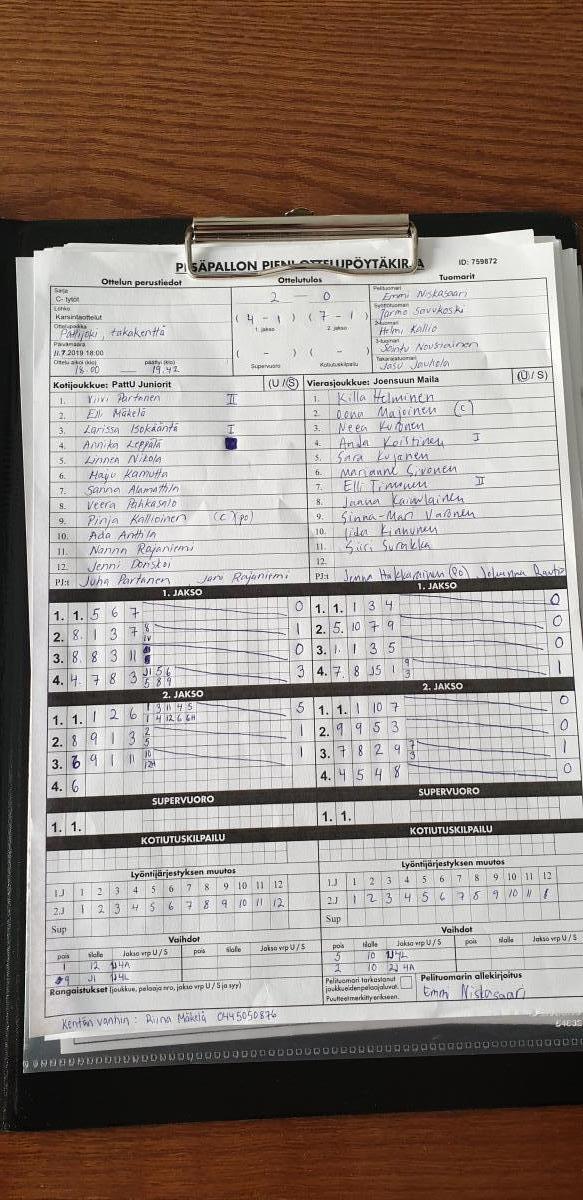 PESÄPALLON PIENI OTTELUPÖYTÄKIRJA ID: 759872
Ottelun perustiedot Ottelutulos Tuomarit
Sarja
C- tytöt
Lohko
Karsintaottelut
Ottelupaikka
Pattijoki, takakenttä
Päivämäärä
11.7.2019 18:00
Ottelu alkoi (klo) päättyi (klo)
18.00 19.42
2 — 0
( 4 - 1 ) ( 7 - 1 )
1. jakso 2. jakso
( - ) ( - )
Supervuoro Kotiutuskilpailu
Pelituomari
Emmi Niskasaari
Syöttötuomari
Jarmo Savukoski
2-tuomari
Helmi Kallio
3-tuomari
Saintu Nousiainen
Takarajatuomari
Jasu Jauhola
Kotijoukkue: PattU Juniorit (U / S)
1. Viivi Partanen II
2. Elli Mäkelä
3. Larissa Isokääntä I
4. Annika Leppälä
5. Linnea Nikola
6. Maju Kamutta
7. Sanna Alamattila
8. Veera Pahkasalo
9. Pinja Kallioinen (C)(PO)
10. Ada Anttila
11. Nanna Rajaniemi
12. Jenni Donskoi
PJ:t Juha Partanen Jaro Rajaniemi
Vierasjoukkue: Joensuun Maila (U / S)
1. Killa Helminen
2. Oona Majoinen (C)
3. Neea Kuronen
4. Anda Koistinen I
5. Sara Kujanen
6. Marianne Sivonen
7. Elli Timonen II
8. Janna Kainulainen
9. Sinna-Mari Varonen
10. Iida Kinnunen
11. Siiri Surakka
12.
PJ:t Jenna Hakkarainen (PO), Johanna Rautio
1. JAKSO
1. 1. 5 6 7 0
2. 8. 1 3 7 8 1
3. 8. 8 3 11 0
4. 4. 7 8 3 3
2. JAKSO
1. 1. 1 2 6 5
2. 8 9 1 3 2 5 1
3. 9 1 11 10 1
4. 6
SUPERVUORO
1. 1.
KOTIUTUSKILPAILU
Lyöntijärjestyksen muutos
1.J 1 2 3 4 5 6 7 8 9 10 11 12
2.J 1 2 3 4 5 6 7 8 9 10 11 12
Sup
Vaihdot
pois tilalle Jakso vrp U / S pois tilalle Jakso vrp U / S
1 12
Rangaistukset (joukkue, pelaaja nro, jakso vrp U / S ja syy)
1. JAKSO
1. 1. 1 3 4 0
2. 5. 10 7 9 0
3. 1. 1 3 5 0
4. 7. 8 1 9 3 1
2. JAKSO
1. 1. 1 10 7 0
2. 9 9 5 3 0
3. 7 8 2 9 7 3 1
4. 4 5 4 8 0
SUPERVUORO
1. 1.
KOTIUTUSKILPAILU
Lyöntijärjestyksen muutos
1.J 1 2 3 4 5 6 7 8 9 10 11 12
2.J 1 2 3 4 5 6 7 8 9 10 11
Sup
Vaihdot
pois tilalle Jakso vrp U / S pois tilalle Jakso vrp U / S
5 10
2 10
Pelituomari tarkastanut joukkueiden pelaajaluvat.
Puutteet merkitty erikseen.
Pelituomarin allekirjoitus
Emmi Niskasaari
Kentän vanhin: Riina Mäkelä 0445050876